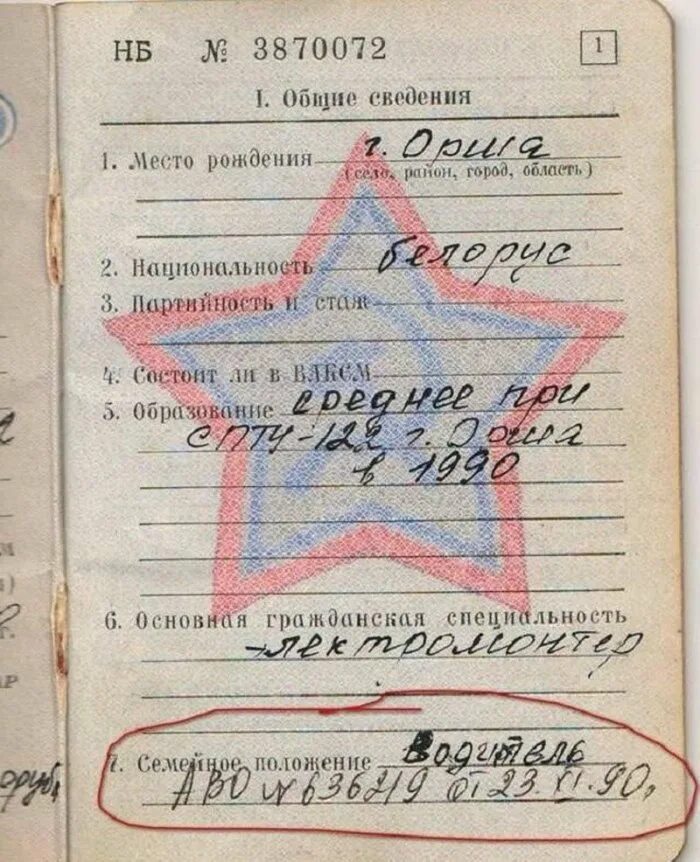 НБ № 3870072
1
I. Общие сведения
1. Место рождения г. Орша
(село, район, город, область)
2. Национальность белорус
3. Партийность и стаж
4. Состоит ли в ВЛКСМ
5. Образование среднее при
СПТУ-122 г. Орша
в 1990
6. Основная гражданская специальность
электромонтер
7. Семейное положение Водитель
АВО № 636219 от 23.XI.90г